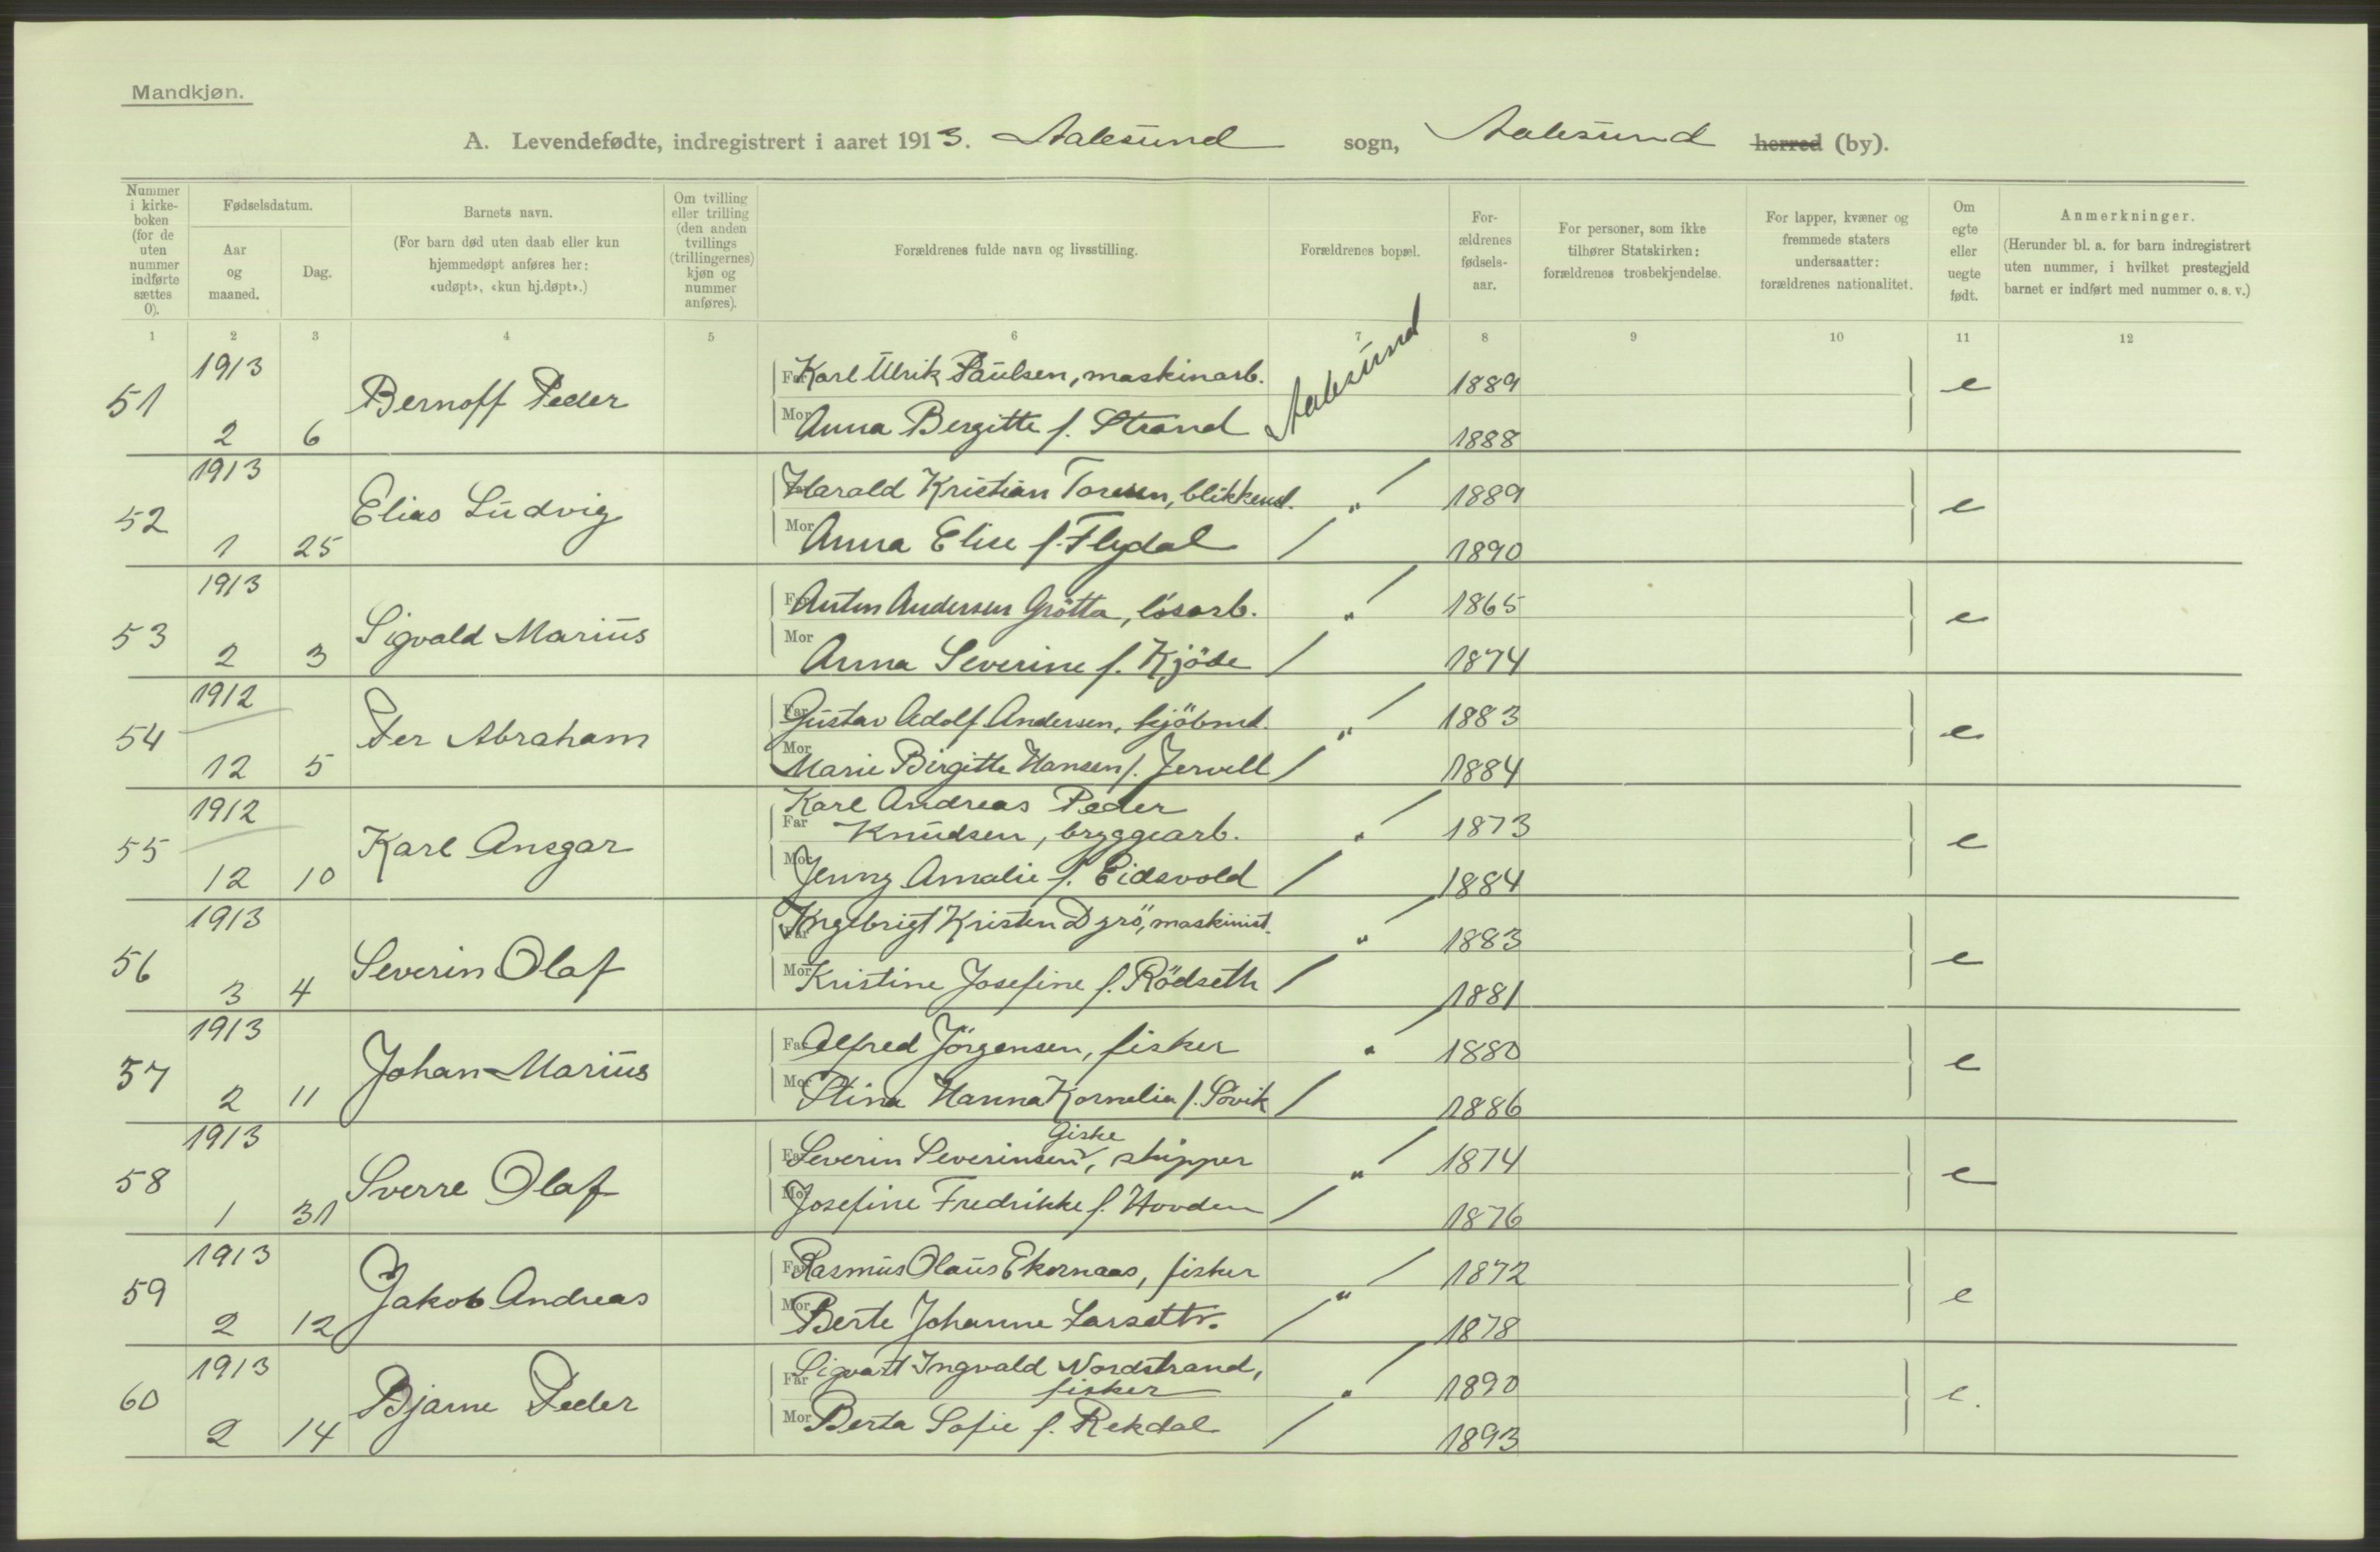 Mandkjøn.
A. Levendefødte, indregistrert i aaret 1913. Aalesund sogn, Aalesund herred (by).
Nummer i kirkeboken (for de uten nummer indførte sættes 0).
Fødselsdatum.
Aar og maaned.
Dag.
Barnets navn.
(For barn død uten daab eller kun hjemmedøpt anføres her: «udøpt», «kun hj.døpt».)
Om tvilling eller trilling (den anden tvillings (trillingernes) kjøn og nummer anføres).
Forældrenes fulde navn og livsstilling.
Forældrenes bopæl.
Forældrenes fødselsaar.
For personer, som ikke tilhører Statskirken: forældrenes trosbekjendelse.
For lapper, kvæner og fremmede staters undersaatter: forældrenes nationalitet.
Om egte eller uegte født.
Anmerkninger.
(Herunder bl. a. for barn indregistrert uten nummer, i hvilket prestegjeld barnet er indført med nummer o. s. v.)
1 2 3 4 5 6 7 8 9 10 11 12
51 1913 2 6 Bernoff Peder
Far Karl Ulrik Paulsen, maskinarb. Aalesund 1889 e
Mor Anna Bergitte f. Strand 1888
52 1913 1 25 Elias Ludvig
Harald Kristian Toresen, blikkensl. " 1889 e
Mor Anna Elise f. Flydal 1890
53 1913 2 3 Sigvald Marius
Far Anton Andersen Grötta, lösarb. " 1865 e
Mor Anna Severine f. Kjöde 1874
54 1912 12 5 Per Abraham
Far Gustav Adolf Andersen, kjöbmd. " 1883 e
Mor Marie Birgitte Hansen f. Jervell 1884
55 1912 12 10 Karl Ansgar
Karl Andreas Peder
Far Knudsen, bryggearb. " 1873 e
Mor Jenny Amalie f. Eidsvold 1884
56 1913 3 4 Severin Olaf
Far Ingebrigt Kristen Dyrö, maskinist. " 1883 e
Mor Kristine Josefine f. Rödseth 1881
57 1913 2 11 Johan Marius
Far Alfred Jörgensen, fisker " 1880 e
Mor Stina Hanna Kornelia f. Sövik 1886
58 1913 1 31 Sverre Olaf
Giske
Far Severin Severinsen, skipper " 1874 e
Mor Josefine Fredrikke f. Hovden 1876
59 1913 2 12 Jakob Andreas
Far Rasmus Olaus Ekornaas, fisker " 1872 e
Mor Berte Johanne Larsdttr. 1878
60 1913 2 14 Bjarne Peder
Far Sigvart Ingvald Nordstrand,
fisker " 1890 e.
Mor Berta Sofie f. Rekdal 1893